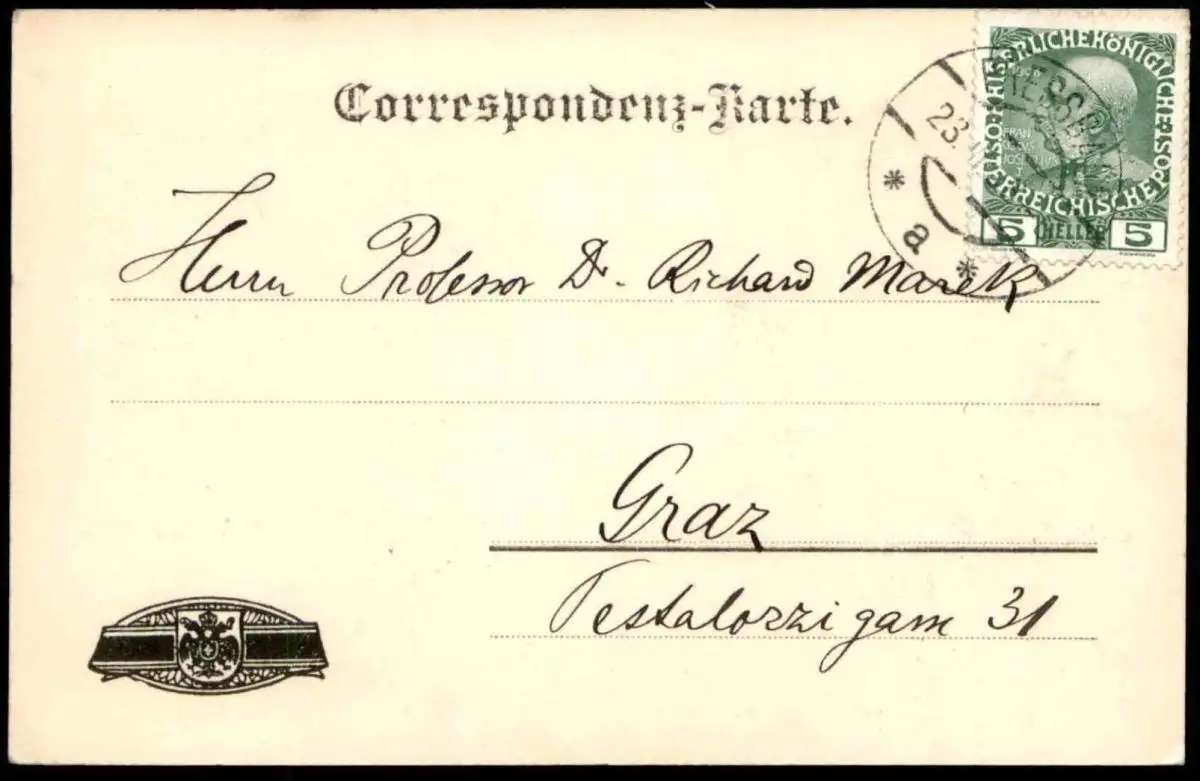 Correspondenz-Karte.
KAISERLICHE KÖNIGLICHE POST
ÖSTERREICHISCHE
5 HELLER 5
23.
a
Herrn Professor Dr. Richard Marek
Graz
Pestalozzigasse 31